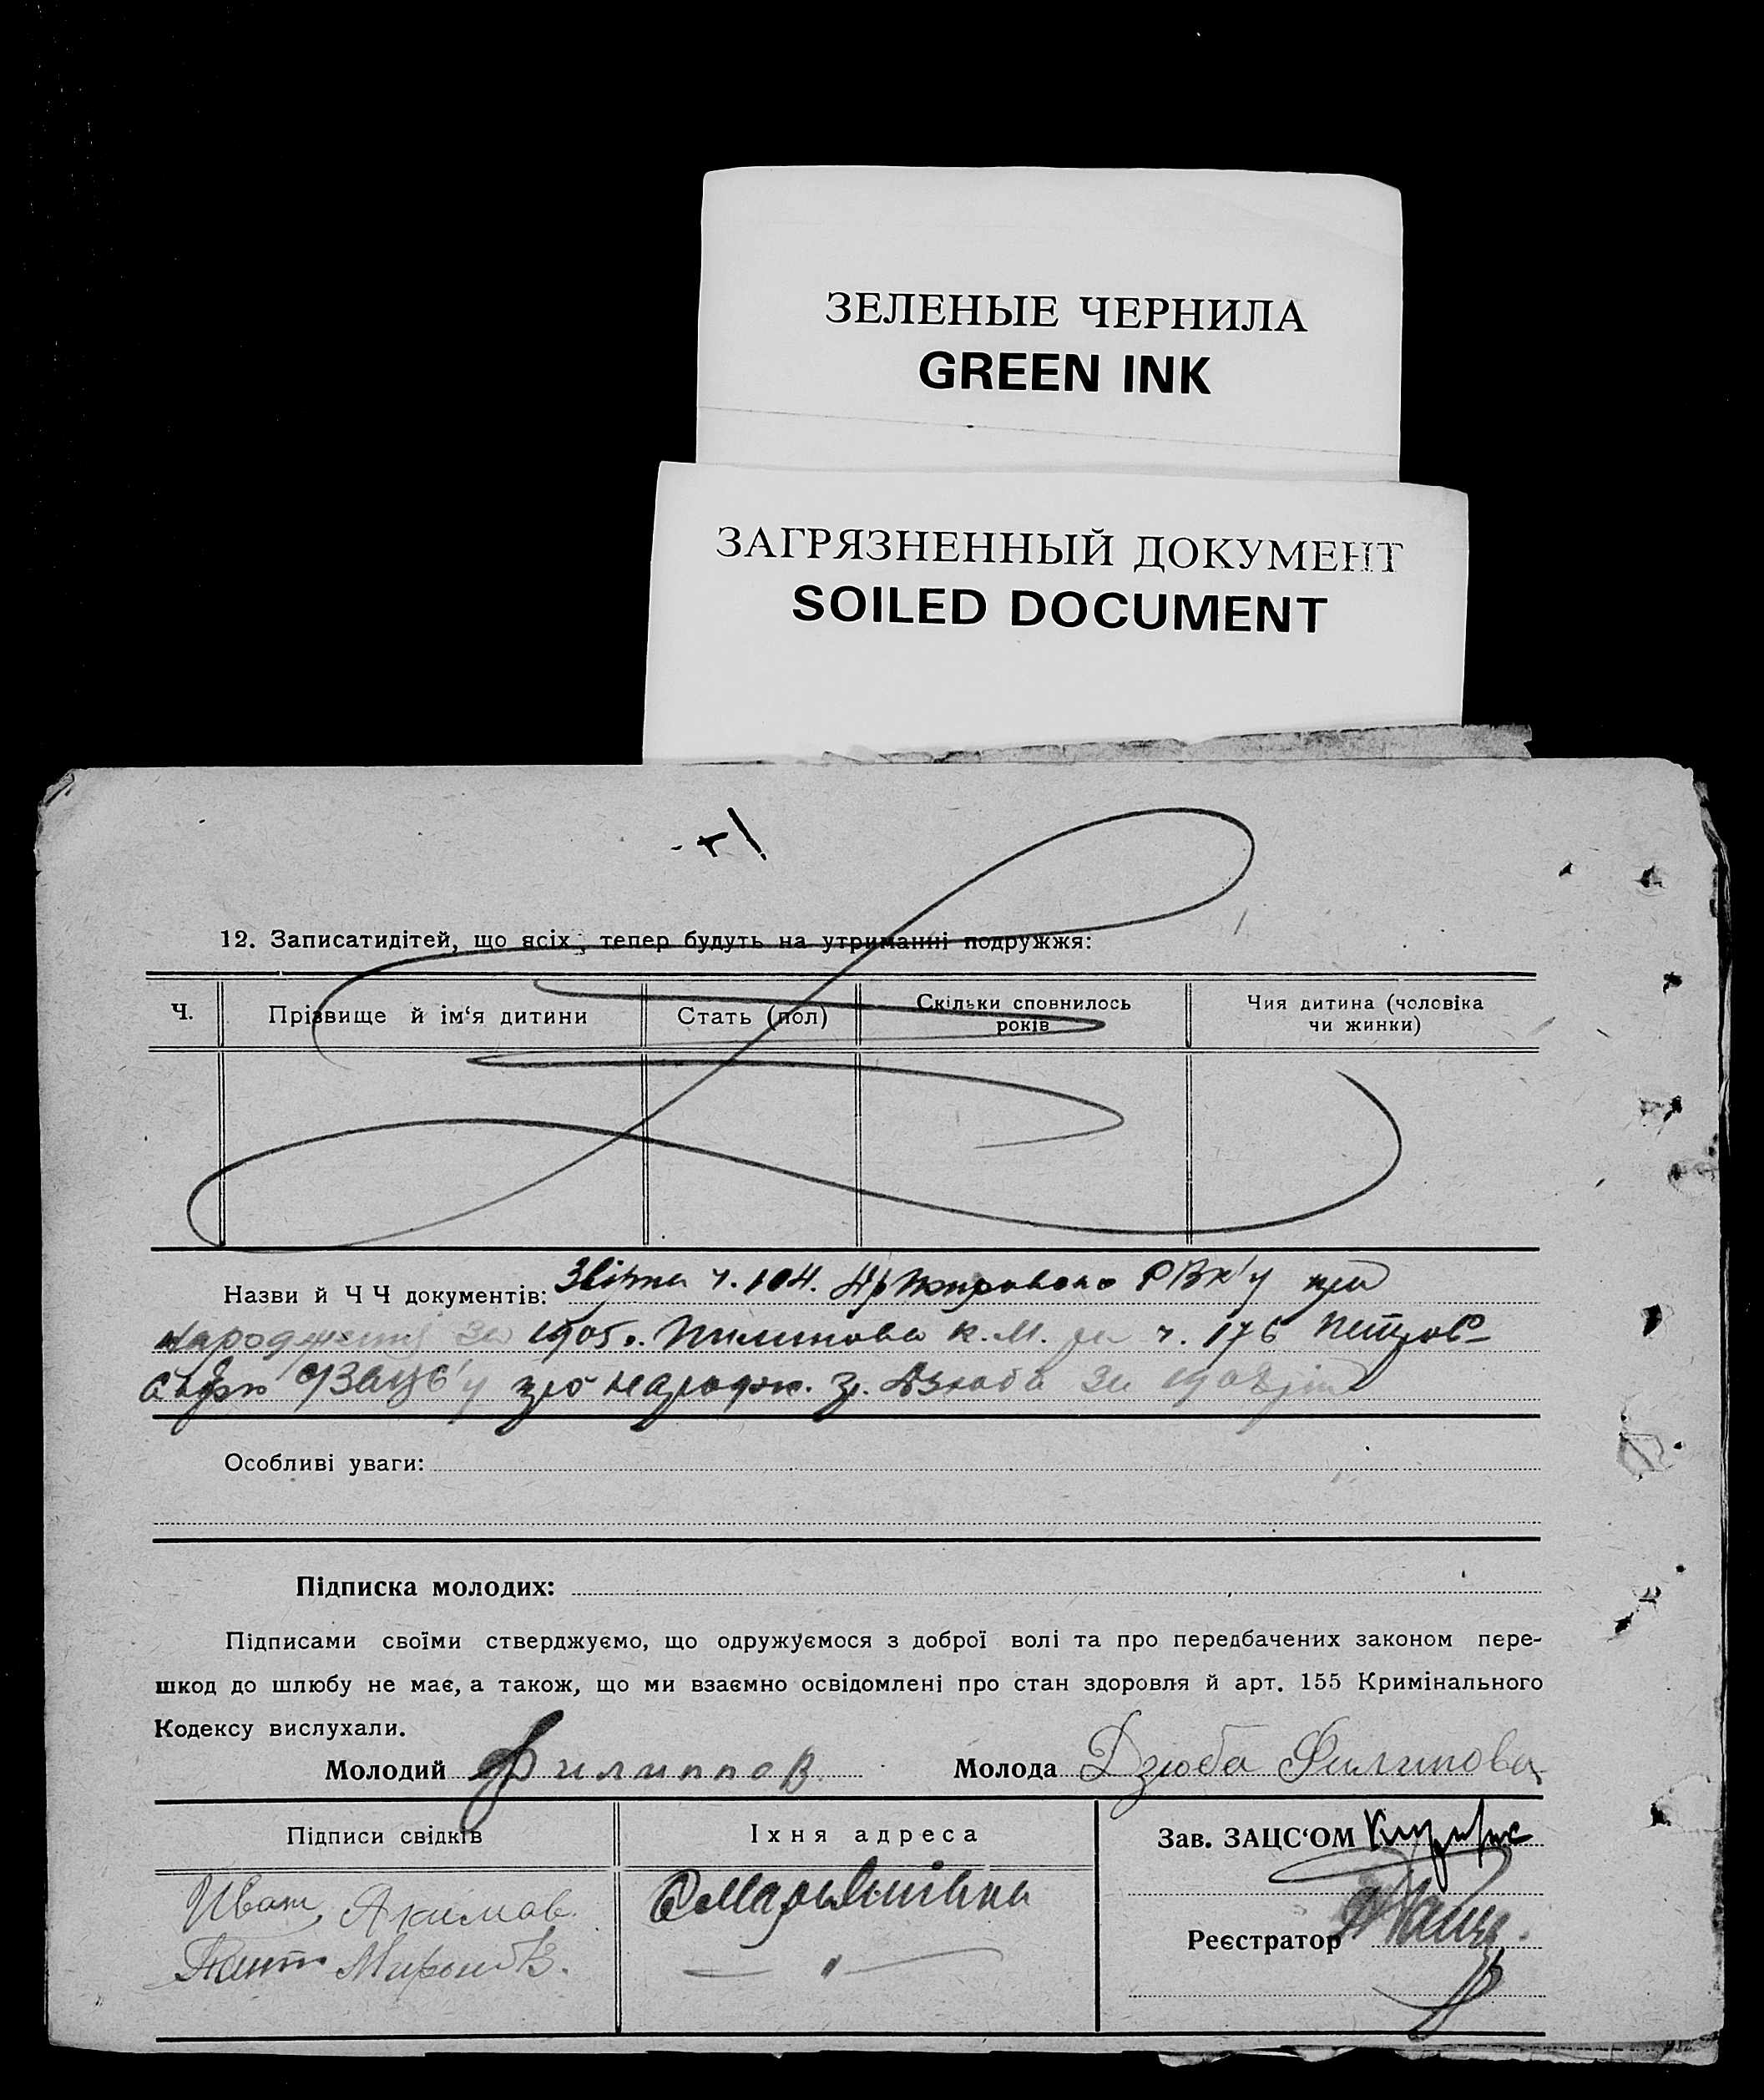 ЗЕЛЕНЫЕ ЧЕРНИЛА
GREEN INK
ЗАГРЯЗНЕННЫЙ ДОКУМЕНТ
SOILED DOCUMENT
12. Записатидітей, що всіх, тепер будуть на утриманні подружжя:
Ч.
Прізвище й ім‘я дитини
Стать (пол)
Скільки сповнилось
років
Чия дитина (чоловіка
чи жинки)
Назви й Ч Ч документів: ч. 104. РВК'у про
народження за 1905 К.М. ч. 176
про народж. гр. Дзюба за
Особливі уваги:
Підписка молодих:
Підписами своїми стверджуємо, що одружуємося з доброї волі та про передбачених законом пере-
шкод до шлюбу не має, а також, що ми взаємно освідомлені про стан здоровля й арт. 155 Кримінального
Кодексу вислухали.
Молодий Филиппов
Молода Дзюба Филипова
Підписи свідків
Їхня адреса
Зав. ЗАЦС‘ОМ
Иван Акимов.
Миронов.
"
Реєстратор